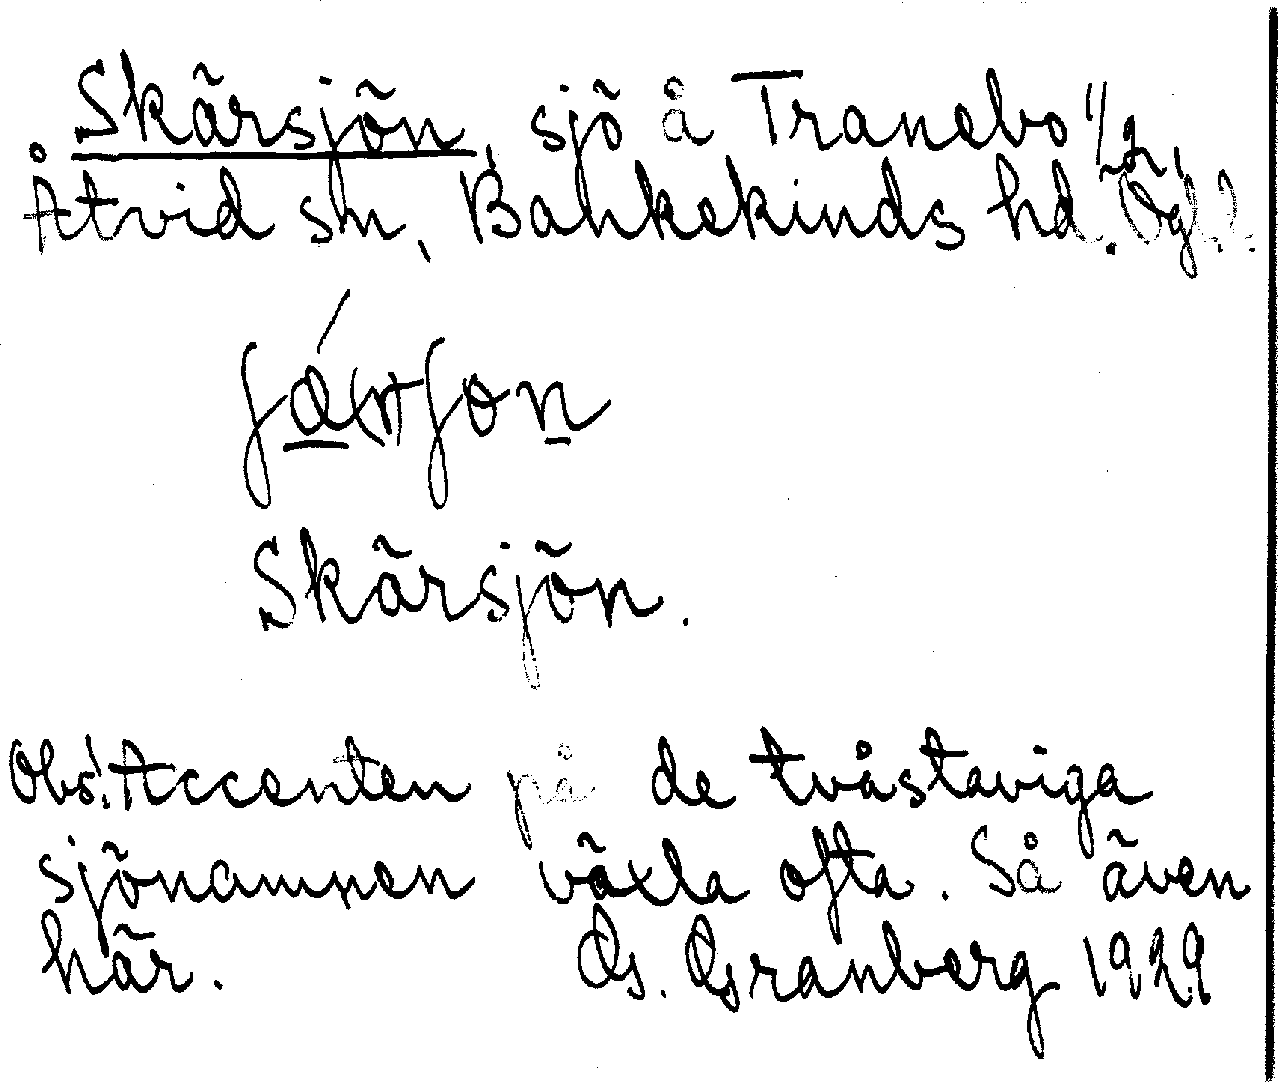 Skärsjön, sjö å Tranebo 1/2,
Åtvid sn, Bankekinds hd. Ögl.
Skärsjön.
Obs! Accenten på de tvåstaviga
sjönamnen växla ofta. Så även
här. G. Granberg 1929